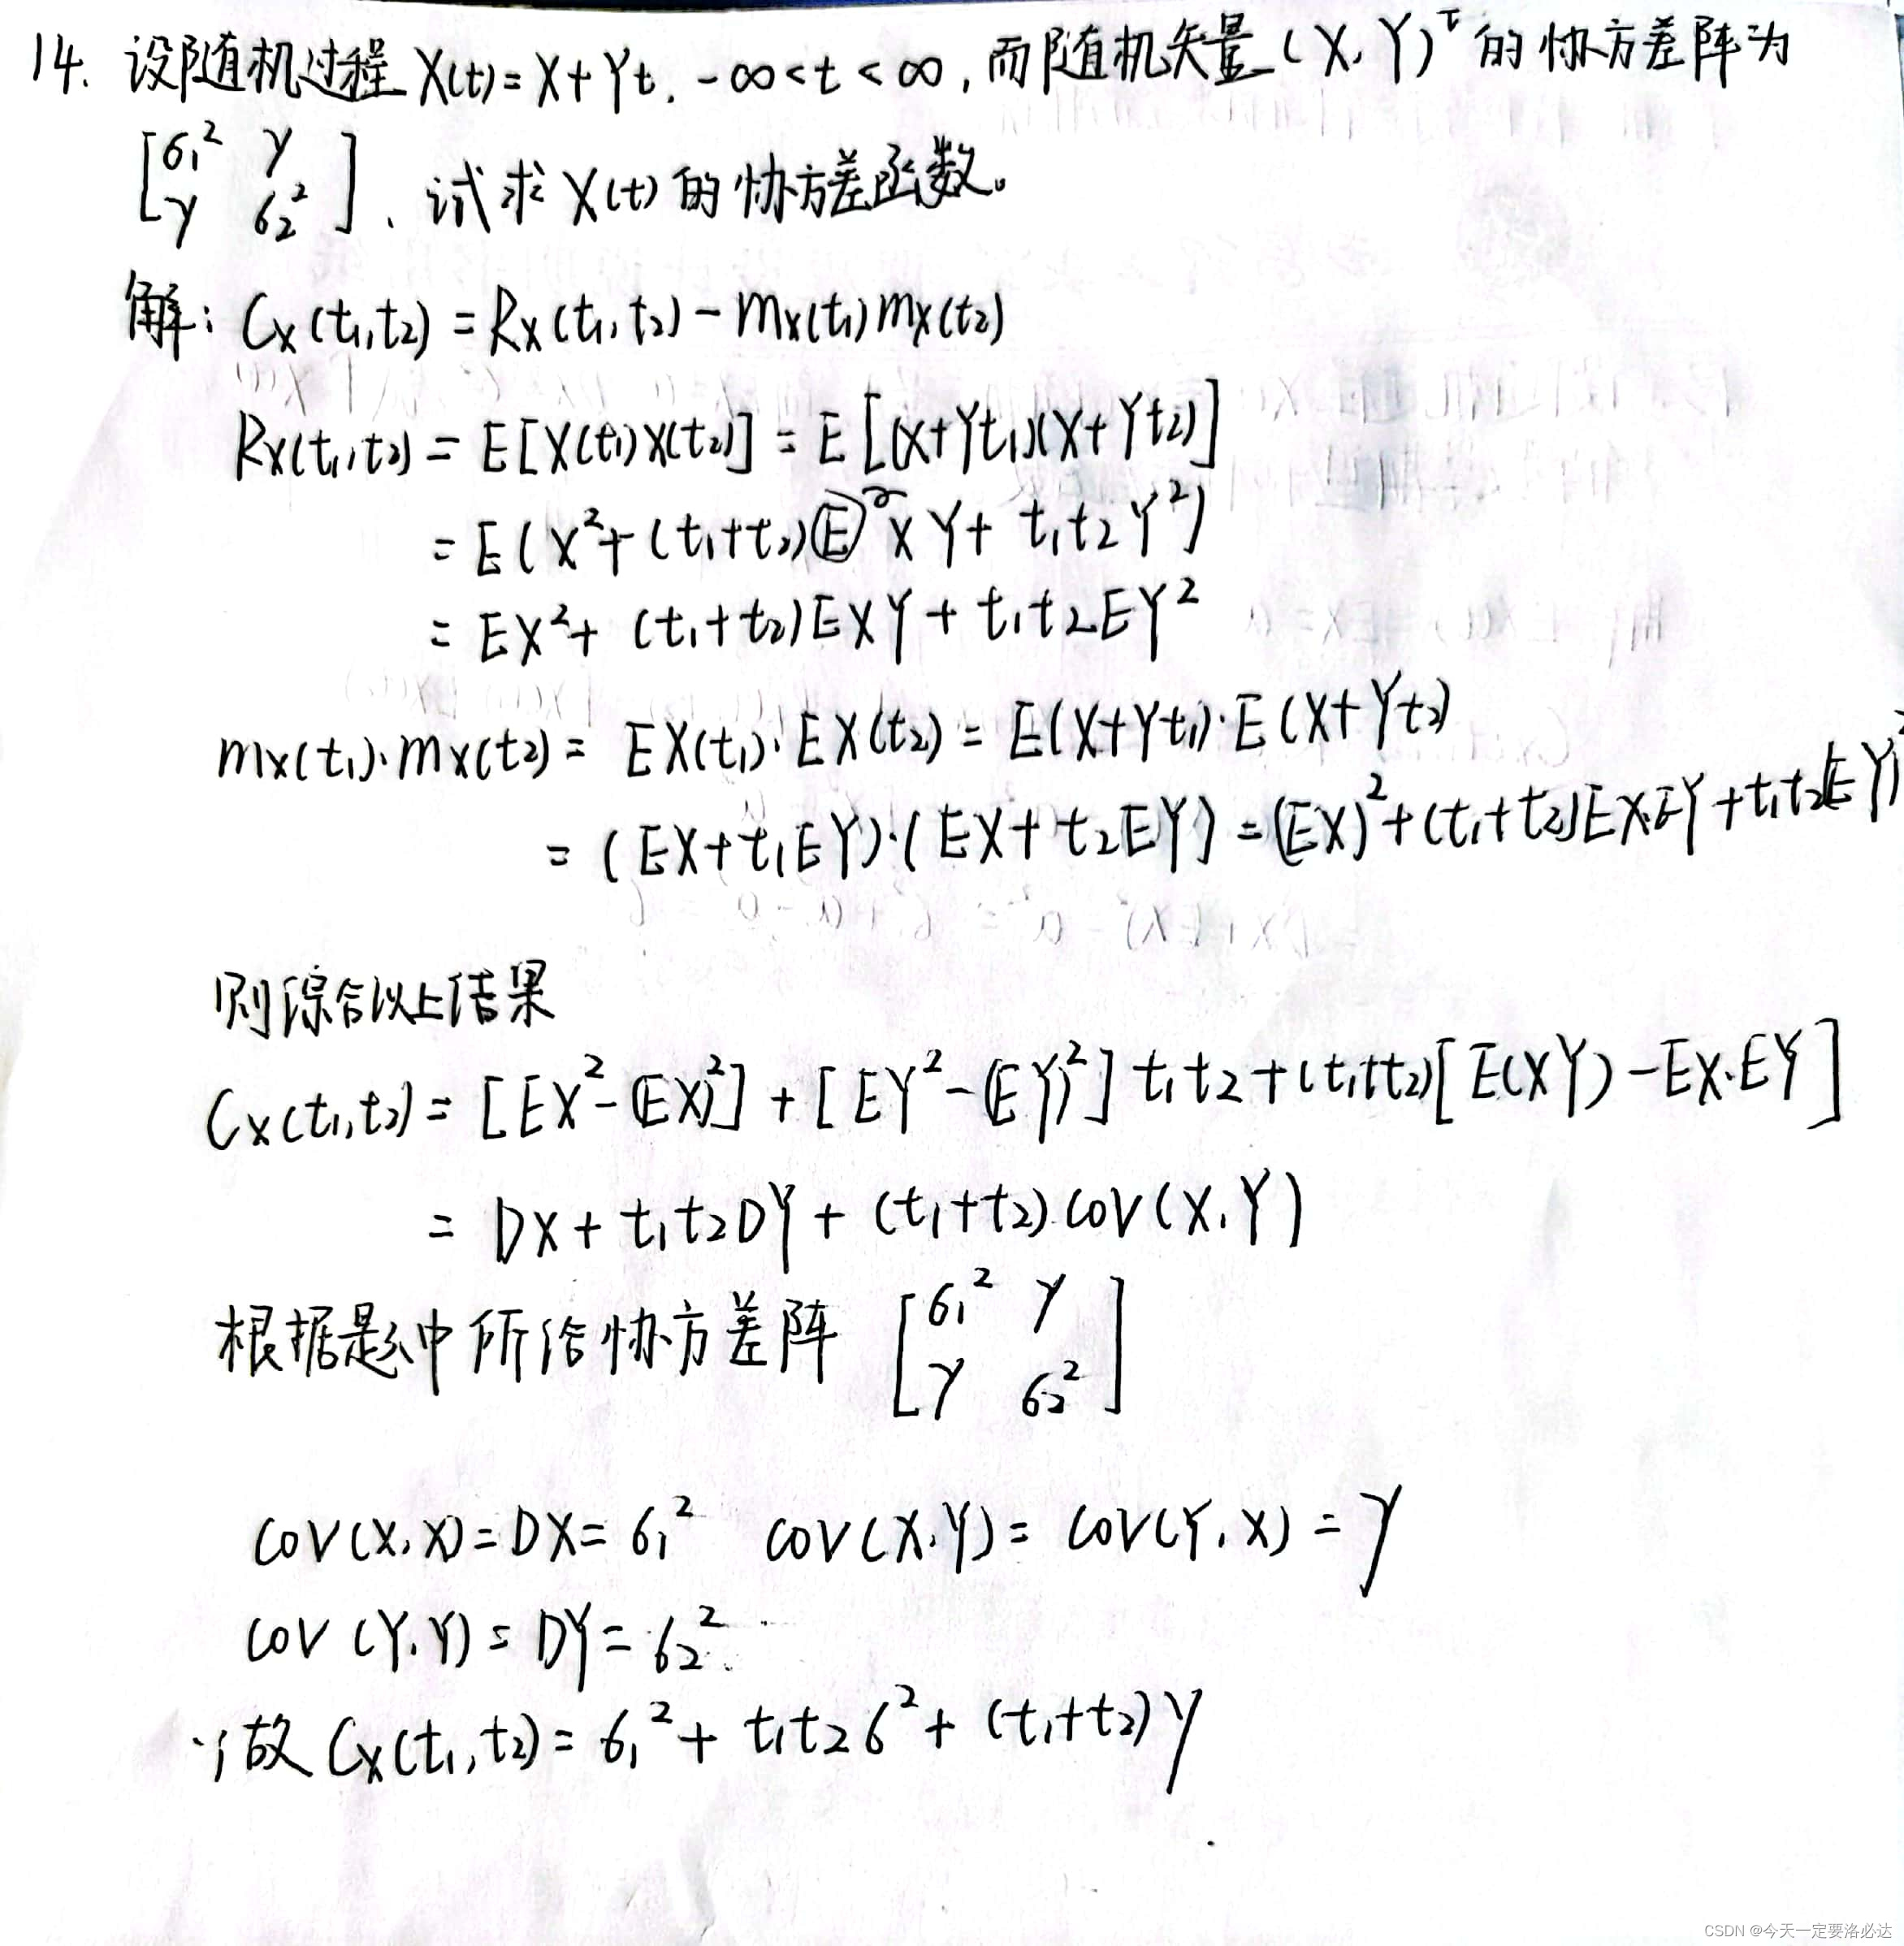 14. 设随机过程X(t)=X+Yt, -∞<t<∞,而随机矢量(X,Y)ᵀ的协方差阵为
[σ₁² γ
γ σ₂²], 试求X(t)的协方差函数。
解: Cx(t₁,t₂)=Rx(t₁,t₂)-mx(t₁)mx(t₂)
Rx(t₁,t₂)=E[X(t₁)X(t₂)]=E[(X+Yt₁)(X+Yt₂)]
=E(X²+(t₁+t₂)XY+t₁t₂Y²)
=EX²+(t₁+t₂)EXY+t₁t₂EY²
mx(t₁)·mx(t₂)=EX(t₁)·EX(t₂)=E(X+Yt₁)·E(X+Yt₂)
=(EX+t₁EY)·(EX+t₂EY)=(EX)²+(t₁+t₂)EX·EY+t₁t₂(EY)²
则综合以上结果
Cx(t₁,t₂)=[EX²-(EX)²]+[EY²-(EY)²]t₁t₂+(t₁+t₂)[E(XY)-EX·EY]
=DX+t₁t₂DY+(t₁+t₂)COV(X,Y)
根据题中所给协方差阵 [σ₁² γ
γ σ₂²]
COV(X,X)=DX=σ₁² COV(X,Y)=COV(Y,X)=γ
COV(Y,Y)=DY=σ₂²
故Cx(t₁,t₂)=σ₁²+t₁t₂σ²+(t₁+t₂)γ
CSDN @今天一定要洛必达